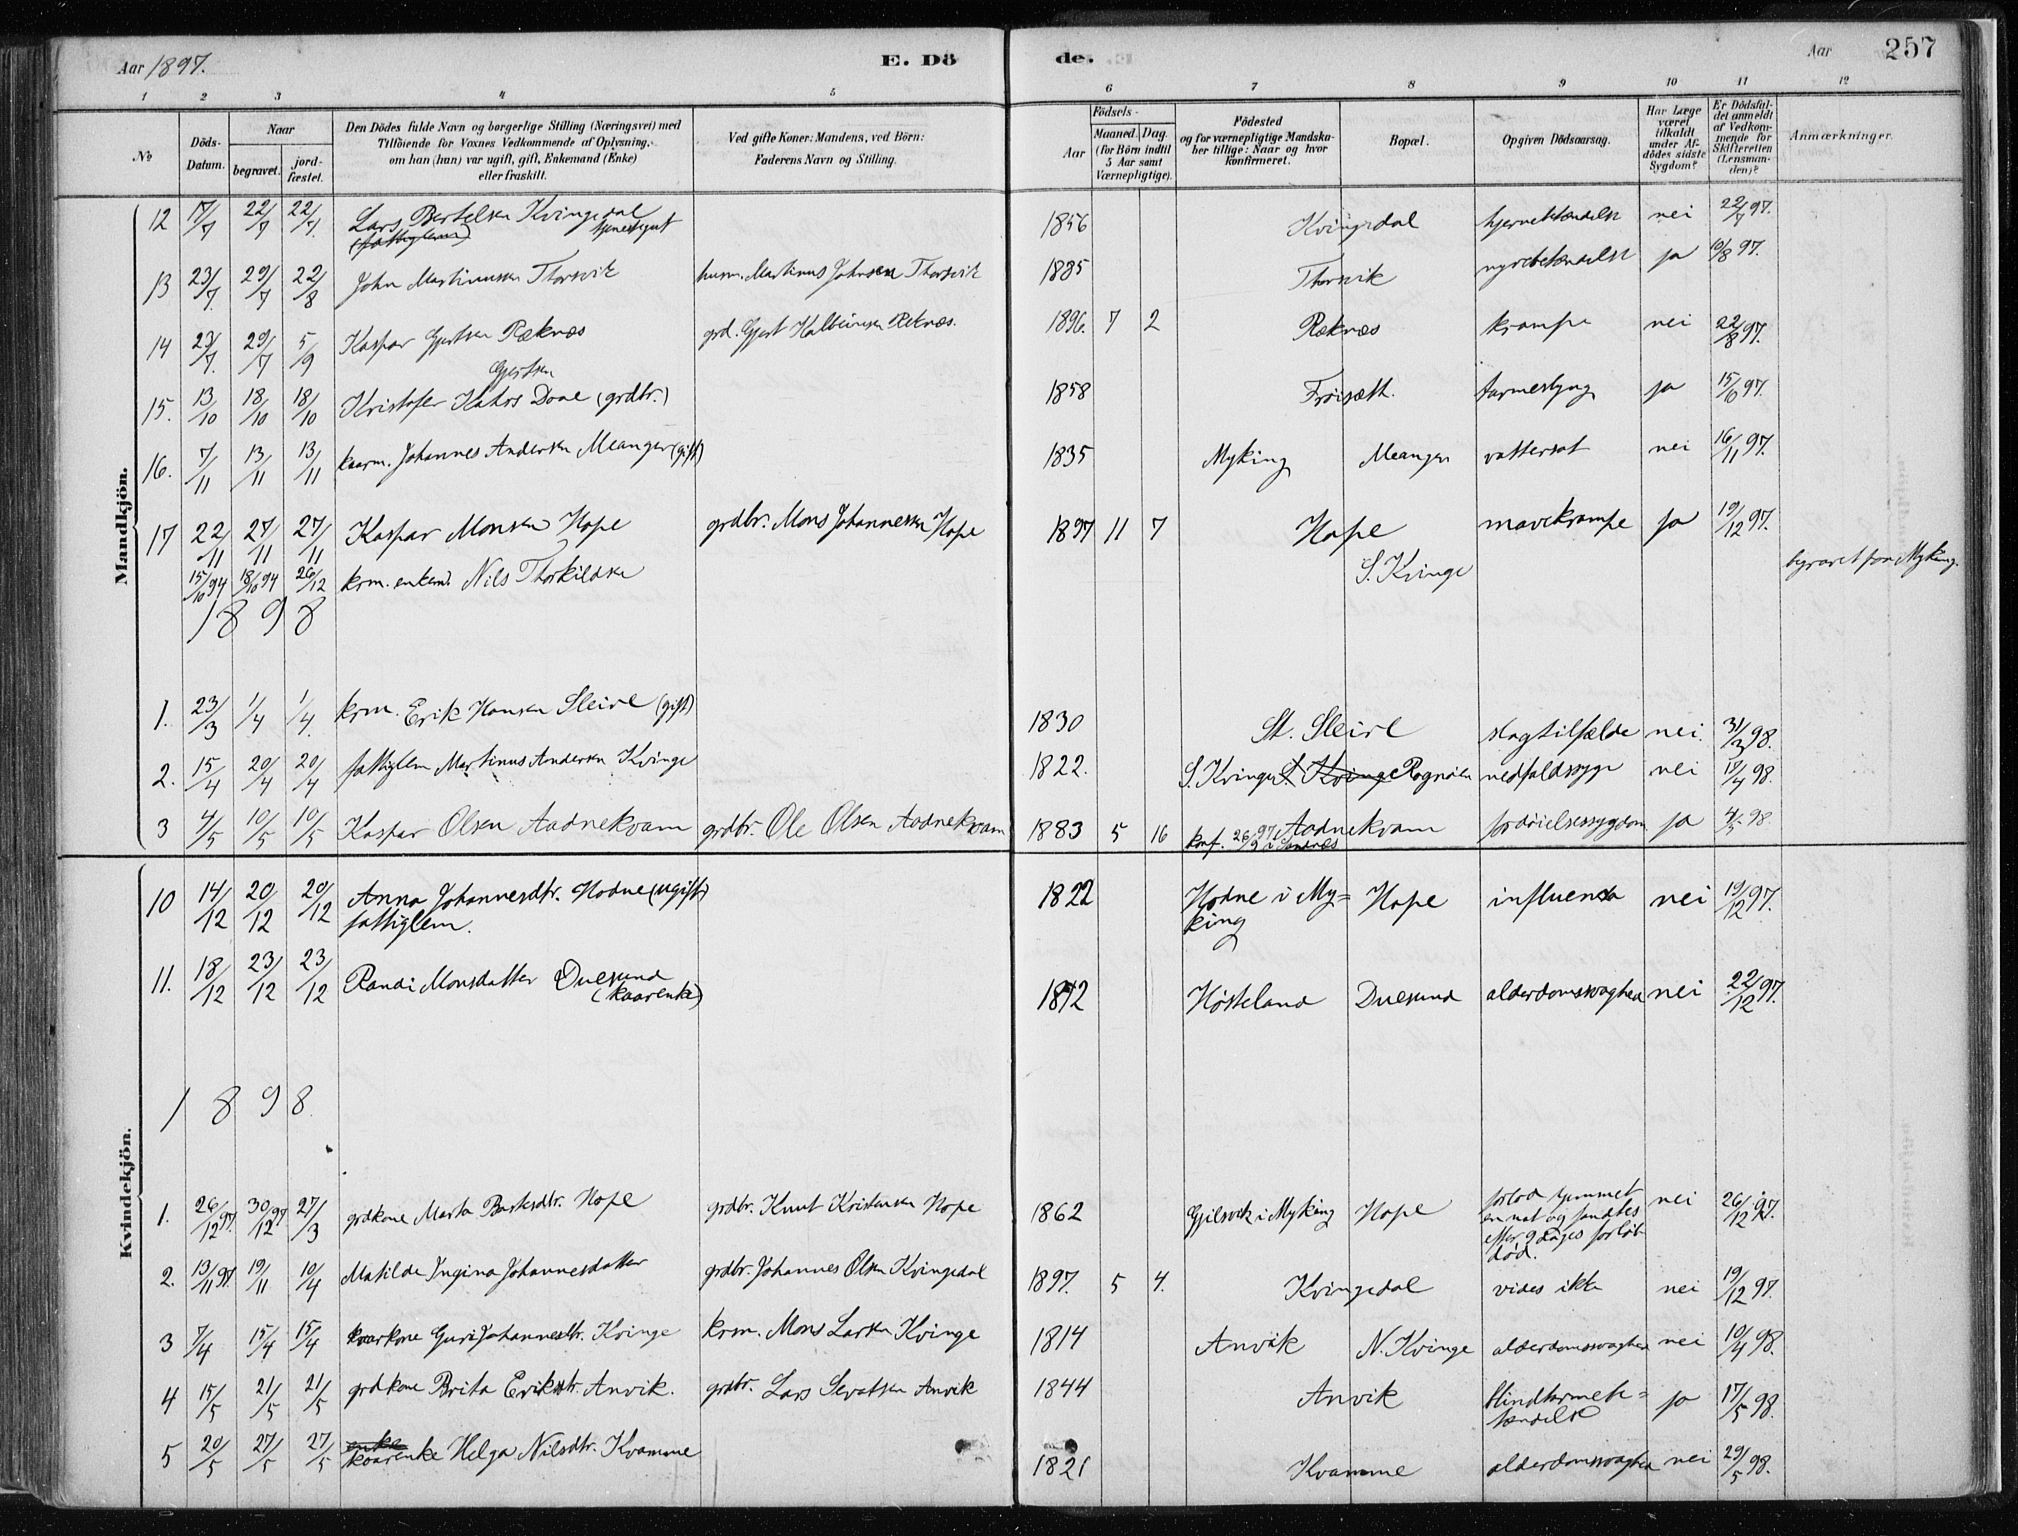 Aar 1897.
E. Dö
de.
Aar
257
1 2 3 4 5 6 7 8 9 10 11 12
No
Döds-Datum.
Naar
begravet.
jord-fæstet.
Den Dödes fulde Navn og borgerlige Stilling (Næringsvei) med
Tilföiende for Voxnes Vedkommende af Oplysning,
om han (hun) var ugift, gift, Enkemand (Enke)
eller fraskilt.
Ved gifte Koner: Mandens, ved Börn:
Faderens Navn og Stilling.
Födsels-
Aar
Maaned. Dag.
(for Börn indtil
5 Aar samt
Værnepligtige).
Födested
og for værnepligtige Mandska-
ber tillige: Naar og hvor
konfirmeret.
Bopæl.
Opgiven Dödsaarsag.
Har Læge
været
tilkaldt
under Af-
dödes sidste
Sygdom?
Er Dödsfal-
det anmeldt
af Vedkom-
mende for
Skifteretten
(Lensman-
den)?
Anmærkninger.
Mandkjön.
12 17/7 22/7 22/7 Lars Bertelsen Kvingedal 1856 Kvingedal hjernebetændelse nei 22/7 97.
(fattiglem) tjenestgut
13 23/7 29/7 22/8 John Martinussen Thorsvik husm. Martinus Johnsen Thorsvik 1885 Thorsvik nyrebetændelse ja 10/8 97.
14 23/7 29/7 5/9 Kaspar Gjertsen Reknæs grd. Gjert Reknæs. 1896 7 2 Reknæs krampe nei 22/8 97.
Gjertsen
15. 13/10 18/10 18/10 Kristofer Dove (grdbr.) 1858 Frøiseth. tarmeslyng ja 15/10 97.
16. 7/11 13/11 13/11 kaarm. Johannes Andersen Meanger (gift) 1835 Myking Meanger vattersot nei 16/11 97.
17 22/11 27/11 27/11 Kaspar Monsen Hope grdbr. Mons Johannessen Hope 1897 11 7 Hope mavekrampe ja 19/12 97.
15/10 94 18/10 94 26/12 krm. enkem. Nils Thorkildsen S. Kvinge begravet paa Myking.
1898
1. 23/3 1/4 1/4. krm. Erik Hansen Sleire (gift) 1830 St. Sleire slagtilfælde nei. 31/3 98.
2. 15/4 20/4 20/4 fattiglem Martinus Andersen Kvinge 1822. S. Kvinge S. Kvinge nedfaldssyge nei 19/4 98.
3 4/5 10/5 10/5 Kaspar Olsen Aadnekvam grdbr. Ole Olsen Aadnekvam 1883 5 16 Aadnekvam fordøielsessygdom ja 98.
konf. 26/9 97 i Sandnes
Kvindekjön.
10 14/12 20/12 20/12 Anna Johannesdtr. Hodne (ugift) 1822 Hodne i My= Hope influensa nei 19/12 97.
fattiglem. king
11. 18/12 23/12 23/12 Randi Monsdatter Duesund 1812 Høsteland Duesund alderdomssvaghed nei 22/12 97.
(kaarenke)
1898.
1. 26/12 97. 30/12 97 27/3 grdkone Marta Hope grdbr. Knut Kristensen Hope 1862 Gjilsvik i Myking Hope forlod hjemmet nei 26/12 97.
en nat og fandtes
efter 9 dages forløb
død.
2. 13/11 97. 19/11 10/4 Matilde Ingina Johannesdatter grdbr. Johannes Olsen Kvingedal 1897. 5 4. Kvingedal vides ikke nei 19/12 97.
3 7/4 15/4 15/4 kaarkone Guri Johannesdtr. Kvinge krm. Mons Larsen Kvinge 1814 Anvik N. Kvinge alderdomssvaghed nei 10/4 98.
4 15/5 21/5 21/5 grdkone Brita Eriksdtr. Anvik. grdbr. Lars Sevatsen Anvik 1844 Anvik blindtarmebe= ja 17/5 98.
tændelse
5 20/5 27/5 27/5 enke kaarenke Helga Nilsdtr. Kvamme 1821 Kvamme alderdomssvaghed nei 29/5 98.